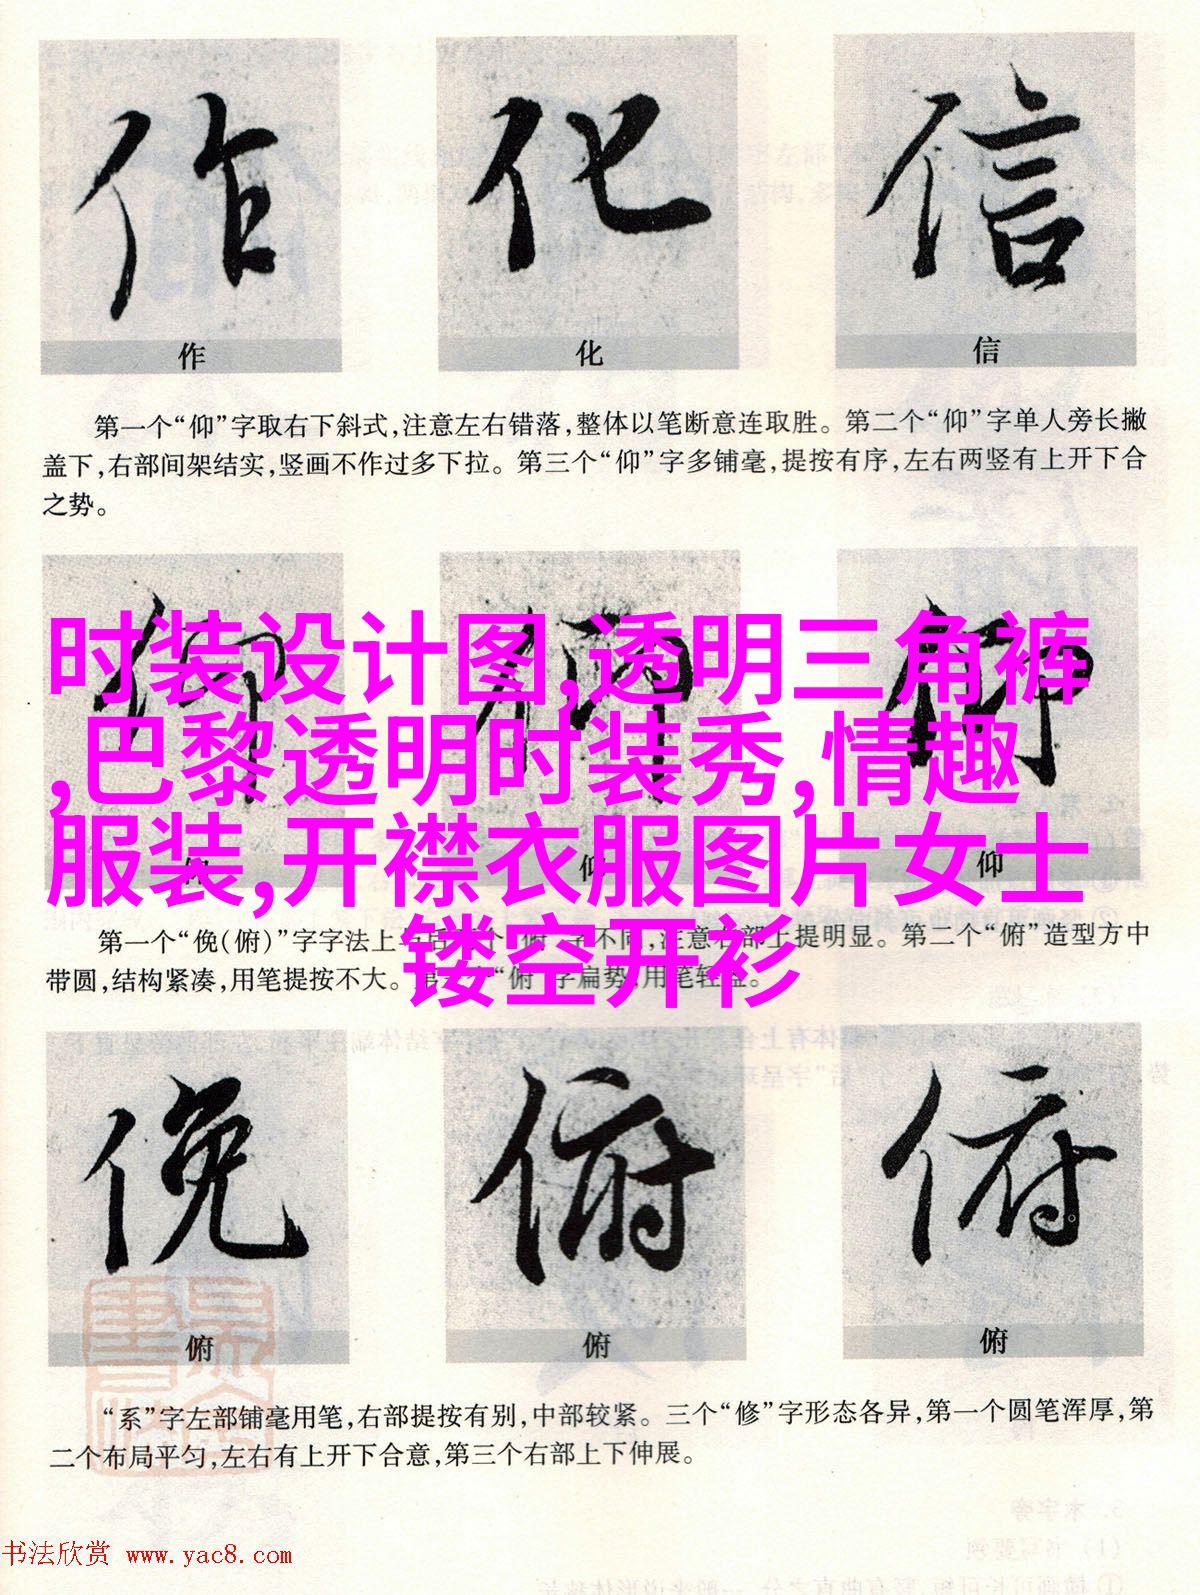 作 化 信
第一个“仰”字取右下斜式,注意左右错落,整体以笔断意连取胜。第二个“仰”字单人旁长撇
盖下,右部间架结实,竖画不作过多下拉。第三个“仰”字多铺毫,提按有序,左右两竖有上开下合
之势。
时装设计图,透明三角裤
,巴黎透明时装秀,情趣
服装,开襟衣服图片女士
镂空开衫
仰 仰 仰
第一个“俛(俯)”字字法上与后 个“俯”字不同,注意右部上提明显。第二个“俯”造型方中
带圆,结构紧凑,用笔提按不大。第三个“俯”字扁势,用笔轻盈。
俛 俯 俯
俯 俯 俯
“系”字左部铺毫用笔,右部提按有别,中部较紧。三个“修”字形态各异,第一个圆笔浑厚,第
二个布局平匀,左右有上开下合意,第三个右部上下伸展。
书法欣赏 www.yac8.com